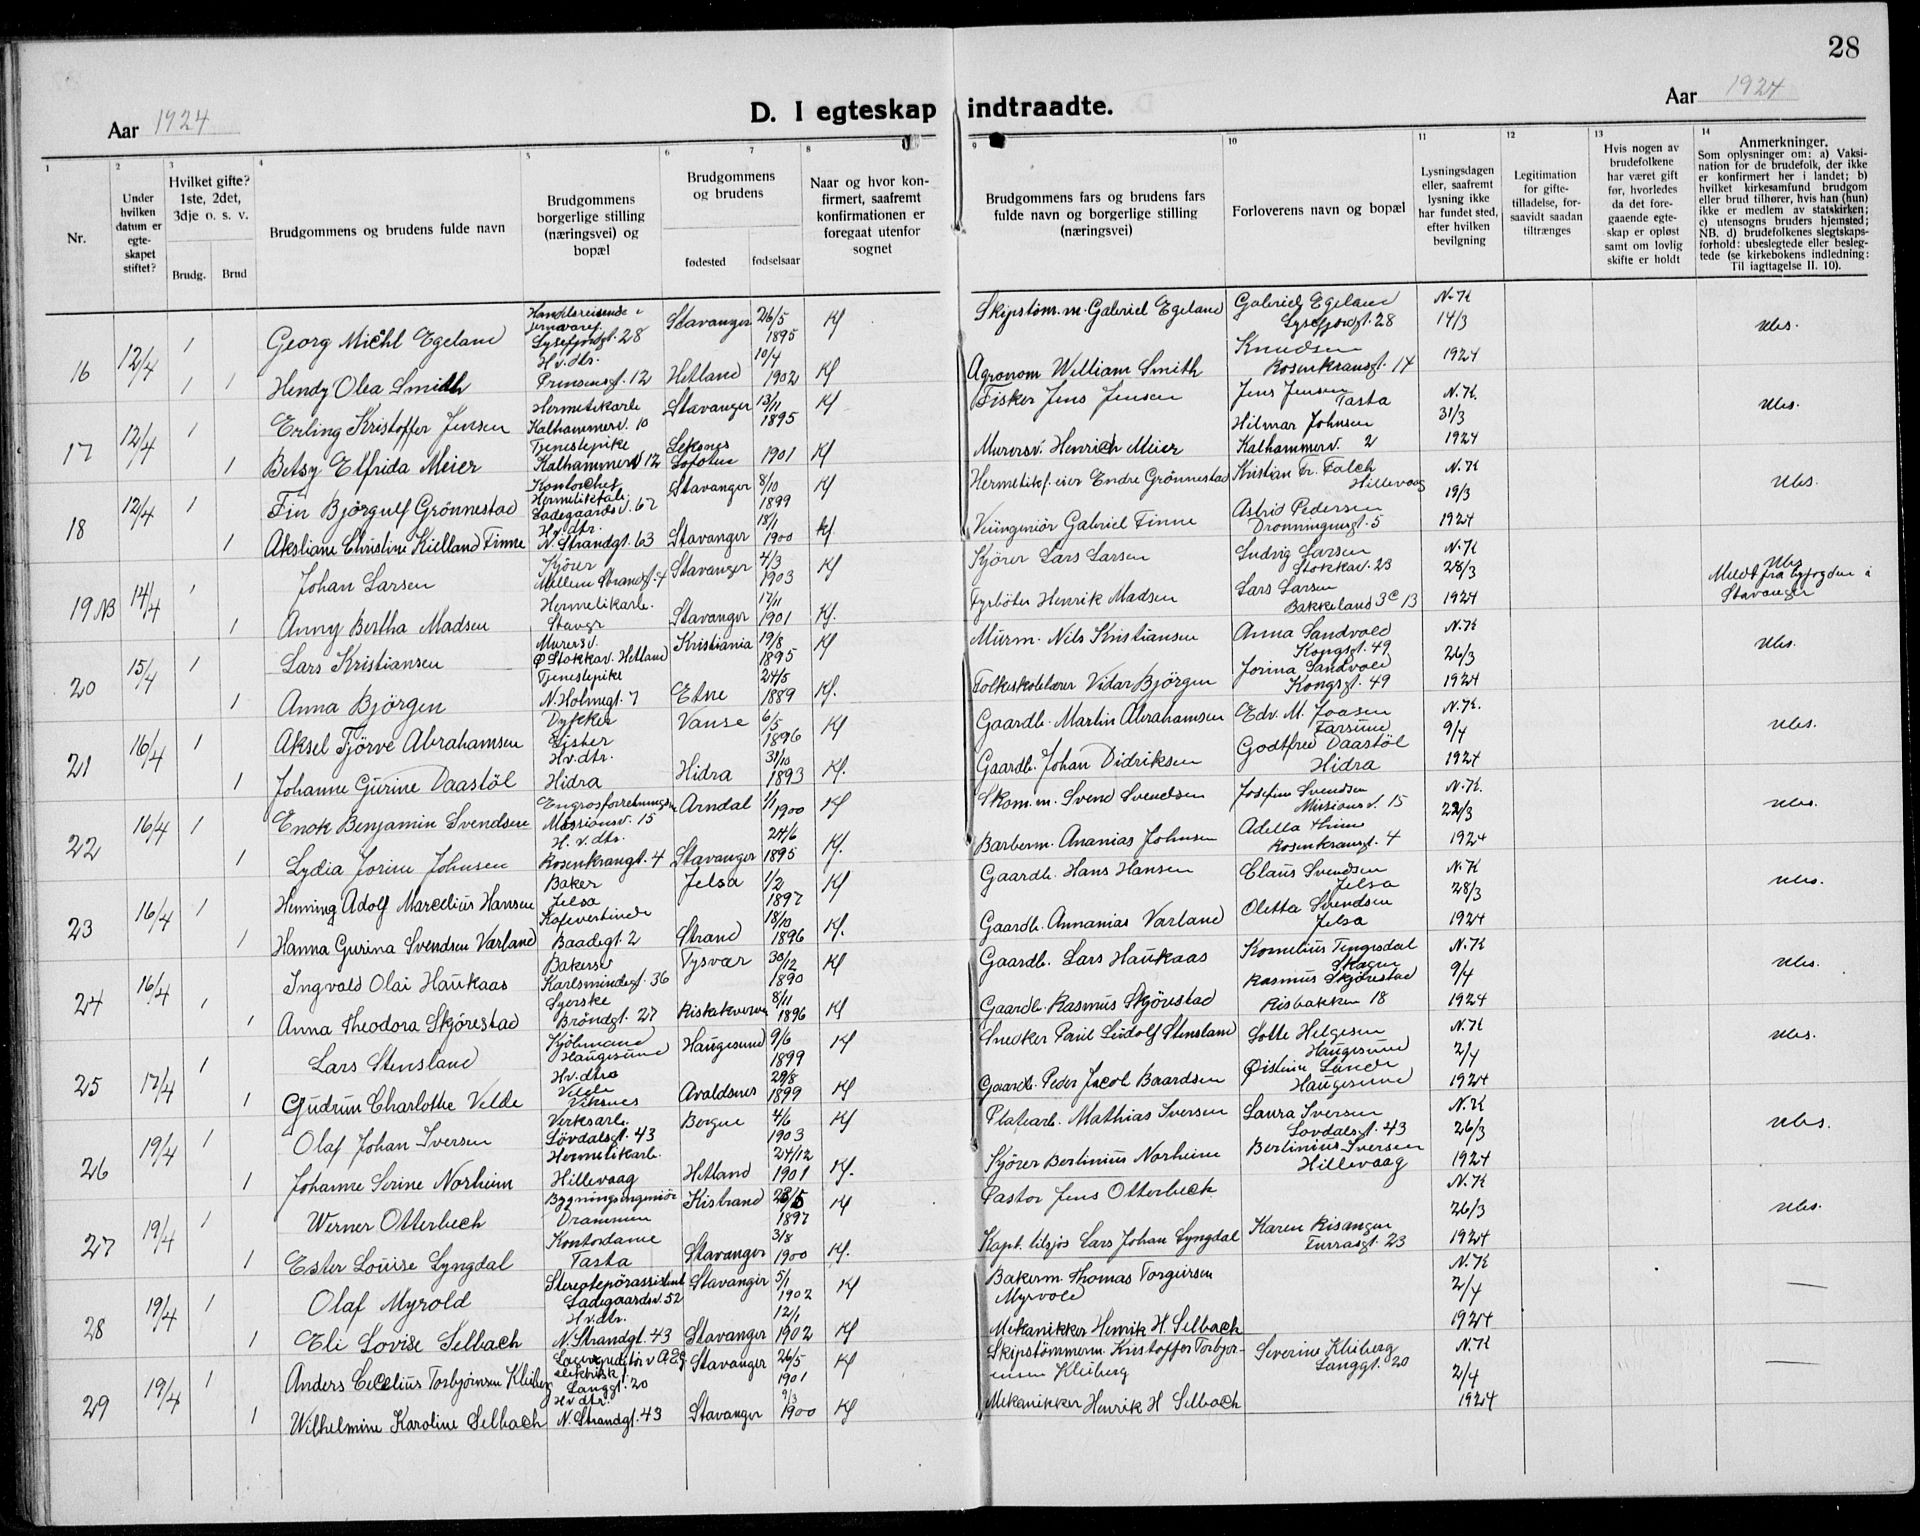 28
Aar 1924
D. I egteskap indtraadte.
Aar 1924
1
Nr.
2
Under hvilken datum er egte-skapet stiftet?
3
Hvilket gifte? 1ste, 2det, 3dje o. s. v.
Brudg.
Brud
4
Brudgommens og brudens fulde navn
5
Brudgommens borgerlige stilling (næringsvei) og bopæl
6
7
Brudgommens og brudens
fødested
fødselsaar
8
Naar og hvor kon-firmert, saafremt konfirmationen er foregaat utenfor sognet
9
Brudgommens fars og brudens fars fulde navn og borgerlige stilling (næringsvei)
10
Forloverens navn og bopæl
11
Lysningsdagen eller, saafremt lysning ikke har fundet sted, efter hvilken bevilgning
12
Legitimation for gifte-tilladelse, for-saavidt saadan tiltrænges
13
Hvis nogen av brudefolkene har været gift før, hvorledes da det fore-gaaende egte-skap er opløst samt om lovlig skifte er holdt
14
Anmerkninger.
Som oplysninger om: a) Vaksi-nation for de brudefolk, der ikke er konfirmert her i landet; b) hvilket kirkesamfund brudgom eller brud tilhører, hvis han (hun) ikke er medlem av statskirken; c) utensogns bruders hjemsted; NB. d) brudefolkenes slegtskaps-forhold: ubeslegtede eller besleg-tede (se kirkebokens indledning: Til iagttagelse II. 10).
16 12/4 1 Georg Michl Egeland Handelsreisende i jernvaref. Lysefjordgt. 28 Stavanger 26/5 1895 Kf Skipstøm.m. Gabriel Egeland Gabriel Egeland Lysefjordgt. 28 N.K 14/3 1924 Ubs.
1 1 Hendy Olea Smith Hv. dtr. Prinsensgt. 12 Hetland 10/4 1902 Kf Agronom William Smith Knudsen Rosenkransgt. 14
17 12/4 1 Erling Kristoffer Jensen Hermetikarb. Kalhammerv. 10 Stavanger 13/11 1895 Kf Fisker Jens Jensen Jens Jensen Tasta N.K. 31/3 1924 Ubs.
1 Betsy Elfrida Meier Tjenestepike Kalhammerv 12 Leknes Lofoten 1901 Kf Murersv. Henrich Meier Hilmar Johnsen Kalhammerv. 2
18 12/4 1 Fin Bjørgulf Grönnestad Kontorchef Hermetikfab. Ladegaardsv. 67 Stavanger 8/10 1899 Kf Hermetikf. eier Endre Grönnestad Kristian Fr. Falch Hillevaag N.K 19/3 1924 Ubs.
1 Aksliane Christine Kielland Finne Hv. dtr. N. Strandgt. 63 Stavanger 18/1 1900 Kf. Veiingeniør Gabriel Finne Astrid Pedersen Dronningensgt. 5
19 NB 14/4 1 Johan Larsen Kjører Mellem Strandgt. 4 Stavanger 4/3 1903 Kf Kjører Lars Larsen Ludvig Larsen Stokkav. 23 N.K 28/3 1924 Ubs Meldt fra byfogden i Stavanger
1 Anny Bertha Madsen Hermetikarb. Stavgr Stavanger 17/11 1901 Kf. Fyrbøter Henrik Madsen Lars Larsen Bakkeland 3c 13
20 15/4 1 Lars Kristiansen Murersv. Ø Stokkav. Hetland Kristiania 19/8 1895 Kf Murm. Nils Kristiansen Anna Sandvold Kongsgt. 49 N.K 26/3 1924 Ubs.
1 Anna Bjørgen Tjenestepike N. Holmegt. 7 Etne 24/5 1889 Kf. Folkeskolelærer Vidar Bjørgen Jorina Sandvold Kongsgt. 49
21 16/4 1 Aksel Tjörve Abrahamsen Dykker Lister Vanse 6/5 1896 Kf Gaardb. Martin Abrahamsen Edv. M. Joasen Farsund N.K. 9/4 1924 Ubs.
1 Johanne Gurine Daastöl Hv. dtr. Hidra Hidra 31/10 1893 Kf. Gaardb. Johan Didriksen Godtfred Daastöl Hidra
22 16/4 1 Enok Benjamin Svendsen Engrosforretningsm Missionsv. 15 Arndal 1/1 1900 Kf Skom.m. Svend Svendsen Josefine Svendsen Missionsv. 15 N.K. 22/3 1924 Ubs.
1 Lydia Jorine Johnsen H. v. dtr. Rosenkrangt. 4 Stavanger 24/6 1895 Kf. Barberm. Ananias Johnsen Adella Rosenkransgt. 4
23 16/4 1 Henning Adolf Marcelius Hansen Baker Jelsa Jelsa 1/2 1897 Kf Gaardb. Hans Hansen Claus Svendsen Jelsa N.K 28/3 1924 Ubs.
1 Hanna Gurina Svendsen Varland Kafevertinde Baadegt. 2 Strand 18/12 1896 Kf. Gaardb. Annanias Varland Oletta Svendsen Jelsa
24 16/4 1 Ingvald Olai Haukaas Bakersv Karlsmindegt. 36 Tysvær 30/12 1890 Kf Gaardb. Lars Haukaas Kornelius Tengesdal Skagen N.K 9/4 1924 Ubs.
1 Anna Theodora Skjörestad Syerske Bröndgt. 27 8/11 1896 Kf Gaardb. Rasmus Skjörestad Rasmus Skjörestad Risbakken 18
25 17/4 1 Lars Stensland Kjöbmand Haugesund Haugesund 9/6 1899 Kf Snedker Paul Ludolf Stensland Lotte Helgesen Haugesund N.K 2/4 1924 Ubs.
1 Gudrun Charlothe Velde Hv. dtr. Velde Viksnes Avaldsnes 29/8 1899 Kf Gaardb. Peder Jacob Baardsen Øistein Lunde Haugesund
26 19/4 1 Olaf Johan Iversen Verksarb. Lövdalsgt. 43 Borgne 4/6 1903 Kf Platearb. Mathias Iversen Laura Iversen Lovdalsgt. 43 N.K 26/3 1924 Ubs.
1 Johanne Serine Norheim Hermetikarb. Hillevaag Hetland 24/12 1901 Kf. Kjører Bertinius Norheim Bertinius Iversen Hillevaag
27 19/4 1 Werner Otterbech Bygningsingeniör Drammen Kistrand 1897 Kf Pastor Jens Otterbeck N.K 26/3 1924 Ubs.
1 Ester Louise Lyngdal Kontordame Tasta Stavanger 3/8 1900 Kf. Kapt. tilsjös Lars Johan Lyngdal Karen Risanger Furrasgt. 23
28 19/4 1 Olaf Myrold Stereotepörassistent Ladegaardsv. 52 Stavanger 5/1 1902 Kf Bakerm Thomas Torgersen Myrvold N.K 2/4 1924 —
1 Eli Lovise Selbach Hv. dtr. N. Strandgt. 43 Stavanger 12/1 1902 Kf Mekanikker Henrik H. Selbach
29 19/4 1 Anders Cicelius Torbjørnsen Kleiberg elektrisk f. Langgt. 20 Stavanger 26/5 1901 Kf Skipstømmerm. Kristoffer Torbjør-nsen Kleiberg Severine Kleiberg Langgt. 20 N.K 2/4 1924 —
1 Wilhelmine Karoline Selbach Hv dtr. N. Strandgt. 43 Stavanger 9/3 1900 Kf Mekanikker Henrik H Selbach